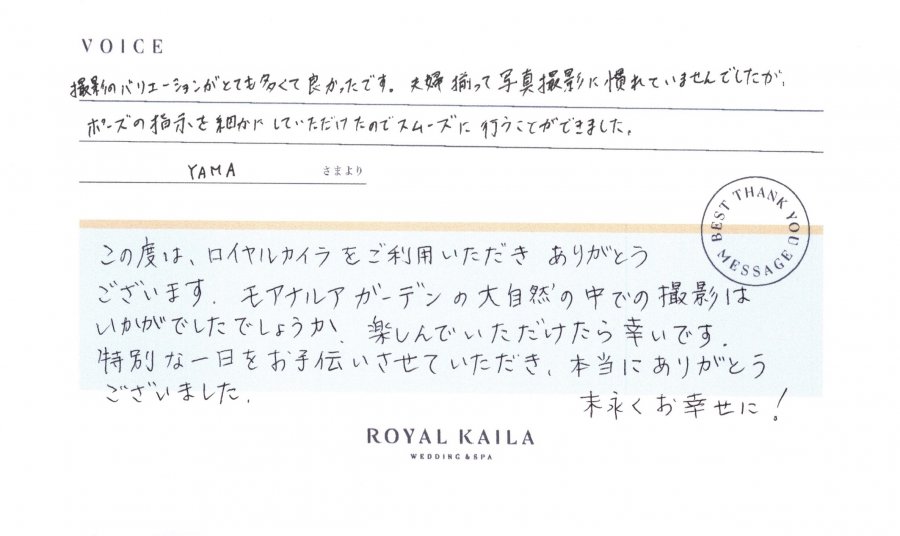 VOICE
撮影のバリエーションがとても多くて良かったです。夫婦揃って写真撮影に慣れていませんでしたが、
ポーズの指示を細かにしていただけたのでスムーズに行うことができました。
YAMA さまより
BEST THANK YOU MESSAGE
この度は、ロイヤルカイラをご利用いただき ありがとう
ございます. モアナルアガーデンの大自然の中での撮影は
いかがでしたでしょうか、楽しんでいただけたら幸いです.
特別な一日をお手伝いさせていただき、本当にありがとう
ございました.
末永くお幸せに!
ROYAL KAILA
WEDDING & SPA